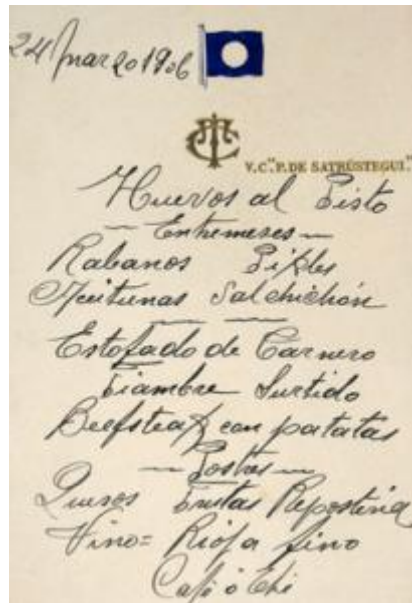 24 Marzo 1906
V. C.ⁿ "P. DE SATRÚSTEGUI."
Huevos al Pisto
Entremeses
Rabanos Pikles
Aceitunas Salchichón
Estofado de Carnero
Fiambre Surtido
Beefsteak con patatas
Postres
Quesos Frutas Reposteria
Vino = Rioja fino
Café ó Thé